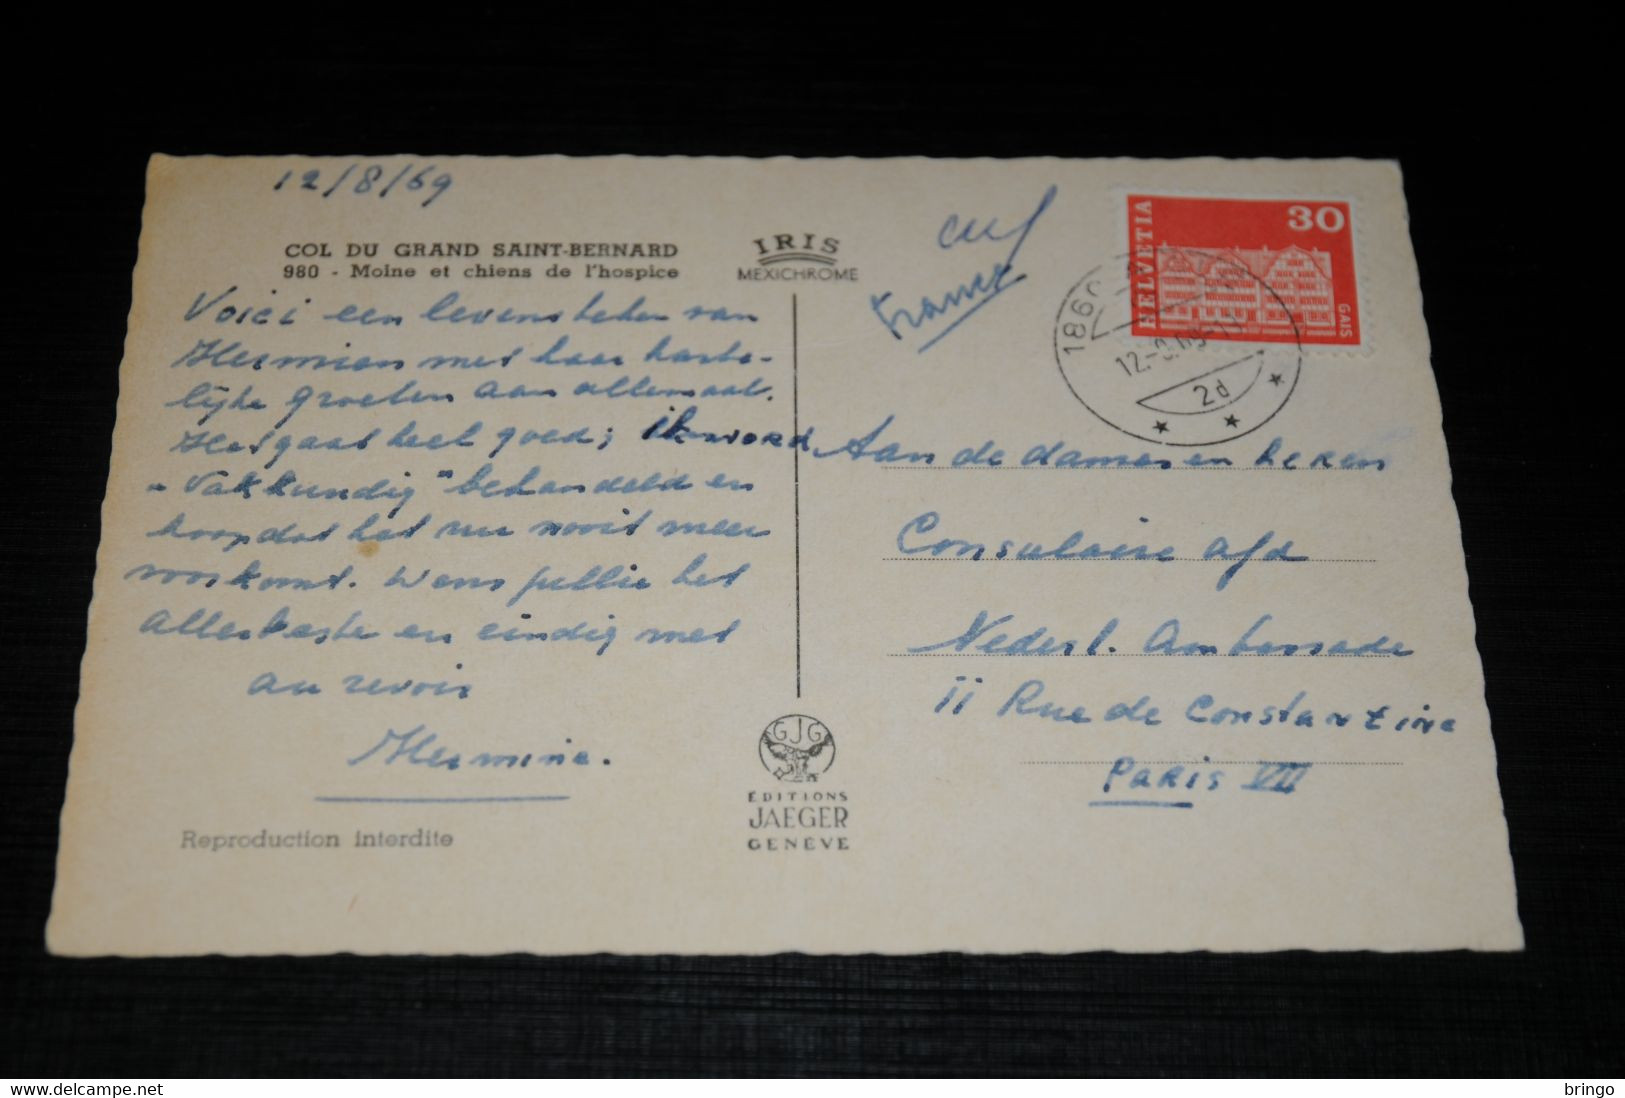 12/8/69
COL DU GRAND SAINT-BERNARD
980 - Moine et chiens de l'hospice
IRIS
MEXICHROME
Voici een levensteken van
Hermien met haar harte-
lijke groeten aan allemaal.
Het gaat heel goed; ik word
"Vakkundig" behandeld en
hoop dat het nu nooit meer
voorkomt. Wens jullie het
allerbeste en eindig met
au revoir
Hermine.
Reproduction interdite
GJG
ÉDITIONS
JAEGER
GENÈVE
France
HELVETIA
30
GAIS
1860
12.-8.69-11
2d
Aan de dames en heren
Consulaire afd
Nederl. Ambassade
11 Rue de Constantine
Paris VII
bringo